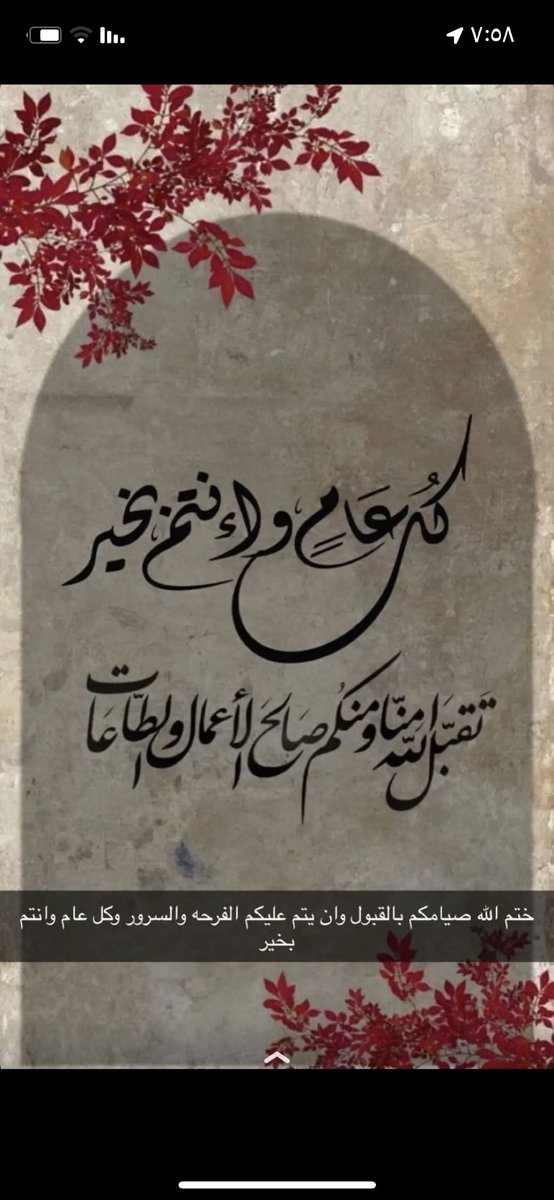 ٧:٥٨
كُل عَامٍ وإنتم بخير
تَقبَّل الله منَّا ومنكُم صَالحَ الأعمال والطَّاعَات
ختم الله صيامكم بالقبول وان يتم عليكم الفرحه والسرور وكل عام وانتم
بخير